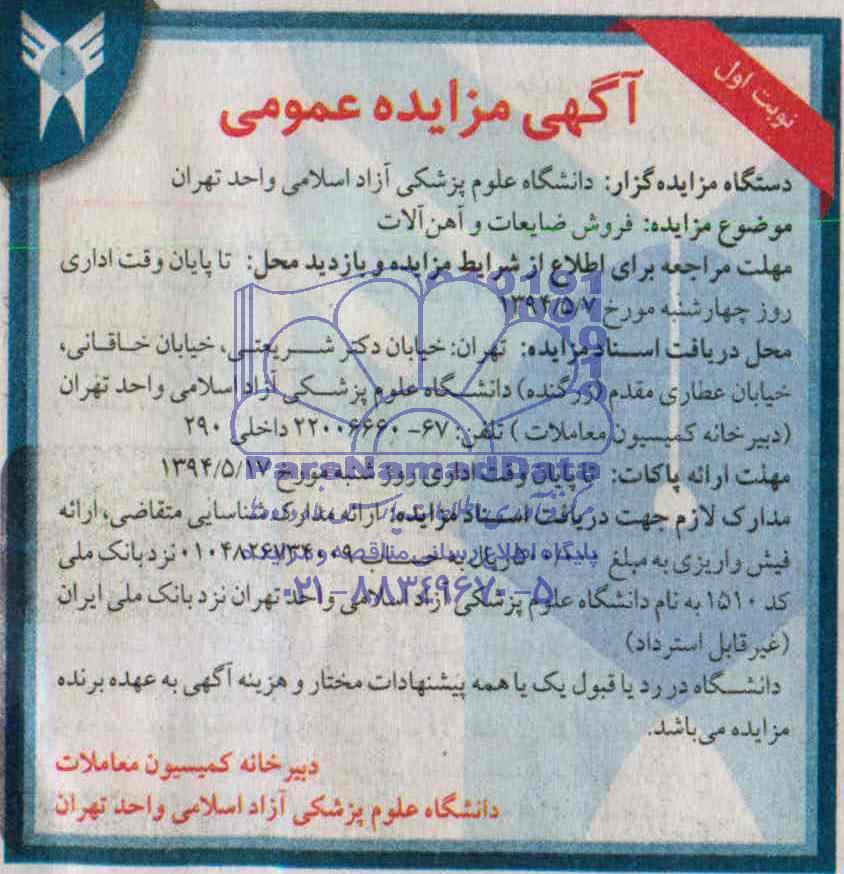 نوبت اول
آگهی مزایده عمومی
دستگاه مزایده‌گزار: دانشگاه علوم پزشکی آزاد اسلامی واحد تهران
موضوع مزایده: فروش ضایعات و آهن‌آلات
مهلت مراجعه برای اطلاع از شرایط مزایده و بازدید محل: تا پایان وقت اداری
روز چهارشنبه مورخ ۱۳۹۴/۵/۷
محل دریافت اسناد مزایده: تهران: خیابان دکتر شریعتی، خیابان خاقانی،
خیابان عطاری مقدم (زرگنده) دانشگاه علوم پزشکی آزاد اسلامی واحد تهران
(دبیرخانه کمیسیون معاملات) تلفن: ۶۷-۲۲۰۰۶۶۶۰ داخلی ۲۹۰
مهلت ارائه پاکات: تا پایان وقت اداری روز شنبه مورخ ۱۳۹۴/۵/۱۷
مدارک لازم جهت دریافت اسناد مزایده: ارائه مدارک شناسایی متقاضی، ارائه
فیش واریزی به مبلغ ریال به حساب ۰۱۰۴۸۲۶۷۳۴۰۰۹ نزد بانک ملی
کد ۱۵۱۰ به نام دانشگاه علوم پزشکی آزاد اسلامی واحد تهران نزد بانک ملی ایران
(غیرقابل استرداد)
دانشگاه در رد یا قبول یک یا همه پیشنهادات مختار و هزینه آگهی به عهده برنده
مزایده می‌باشد.
دبیرخانه کمیسیون معاملات
دانشگاه علوم پزشکی آزاد اسلامی واحد تهران
ParsNamadData
پایگاه اطلاع رسانی مناقصه و مزایده
۰۲۱-۸۸۳۴۹۶۷۰-۵